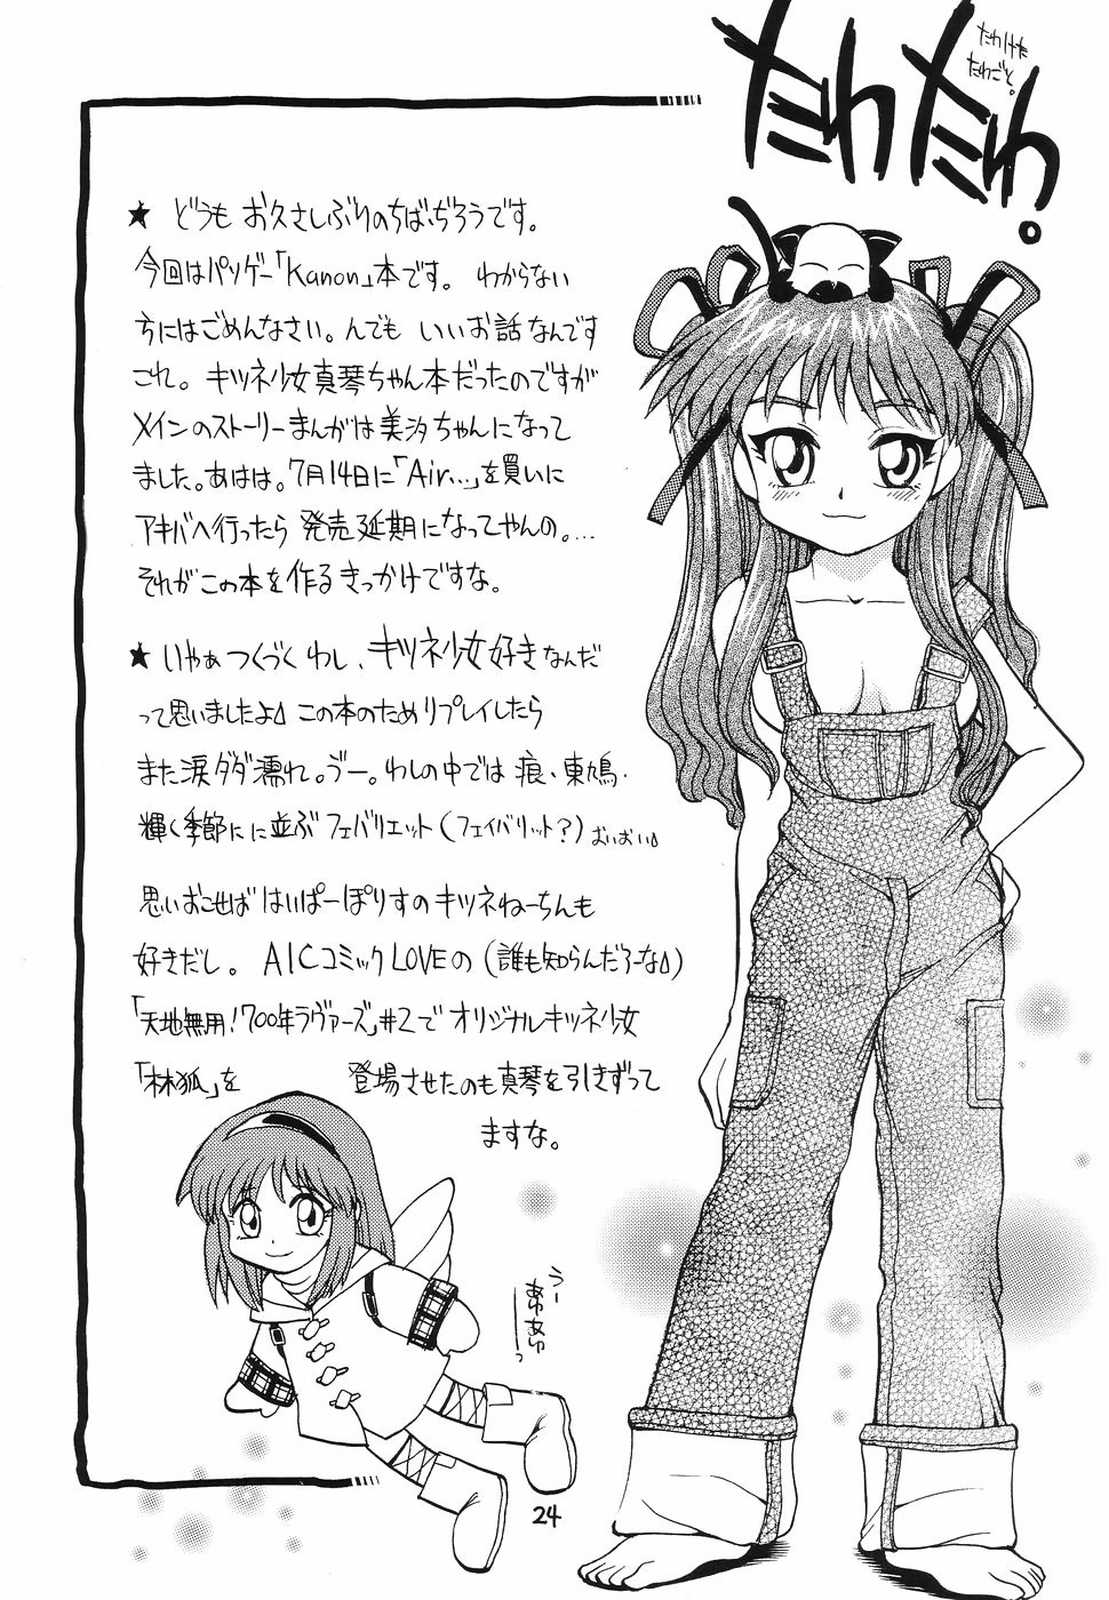 たわたわ。
たわけた
たわごと。
★ どうも お久さしぶりのちばぢろうです。
今回はパソゲー「Kanon」本です。 わからない
方にはごめんなさい。んでも いいお話なんです
これ。 キツネ少女真琴ちゃん本だったのですが
メインのストーリーまんがは美汐ちゃんになって
ました。あはは。7月14日に「Air…」を買いに
アキバへ行ったら 発売延期になってやんの。…
それがこの本を作るきっかけですな。
★ いやぁ つくづく わし、キツネ少女好きなんだ
って思いましたよ この本のためリプレイしたら
また涙ダダ濡れ。ゔー。わしの中では 痕、東鳩、
輝く季節にに並ぶフェバリエット(フェイバリット?)おいおい
思いおこせば はいぱーぽりすのキツネねーちんも
好きだし。 AICコミックLOVEの(誰も知らんだろーな)
「天地無用!700年ラヴァーズ」#2で オリジナルキツネ少女
「林狐」を 登場させたのも真琴を引きずって
ますな。
うー
あゆあゆーっ
24